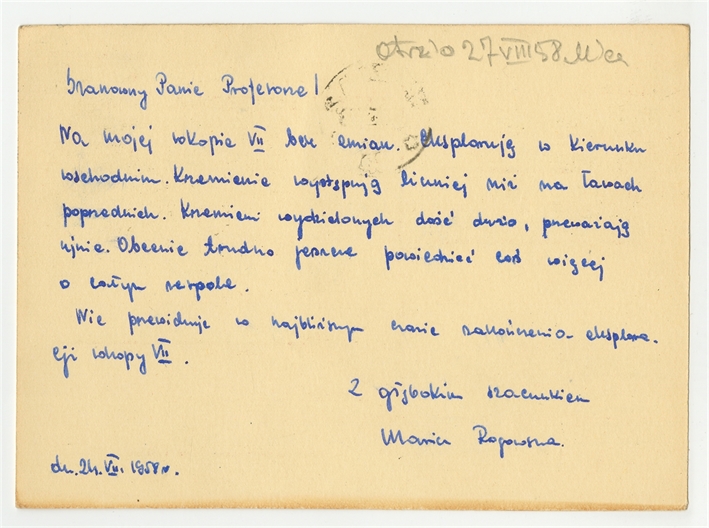 otrz'o 27 VIII 58
Szanowny Panie Profesorze!
Na mojej wkopie VII bez zmian. Eksploruję w kierunku
wschodnim. Krzemienie występują liczniej niż na ławach
poprzednich. Krzemieni wydzielonych dość dużo, przeważają
rjnie. Obecnie trudno jeszcze powiedzieć coś więcej
o całym zespole.
Nie przewiduję w najbliższym czasie zakończenia eksplora-
cji wkopy VII.
Z głębokim szacunkiem
Maria Rogowska.
dn. 24. VIII. 1958 r.